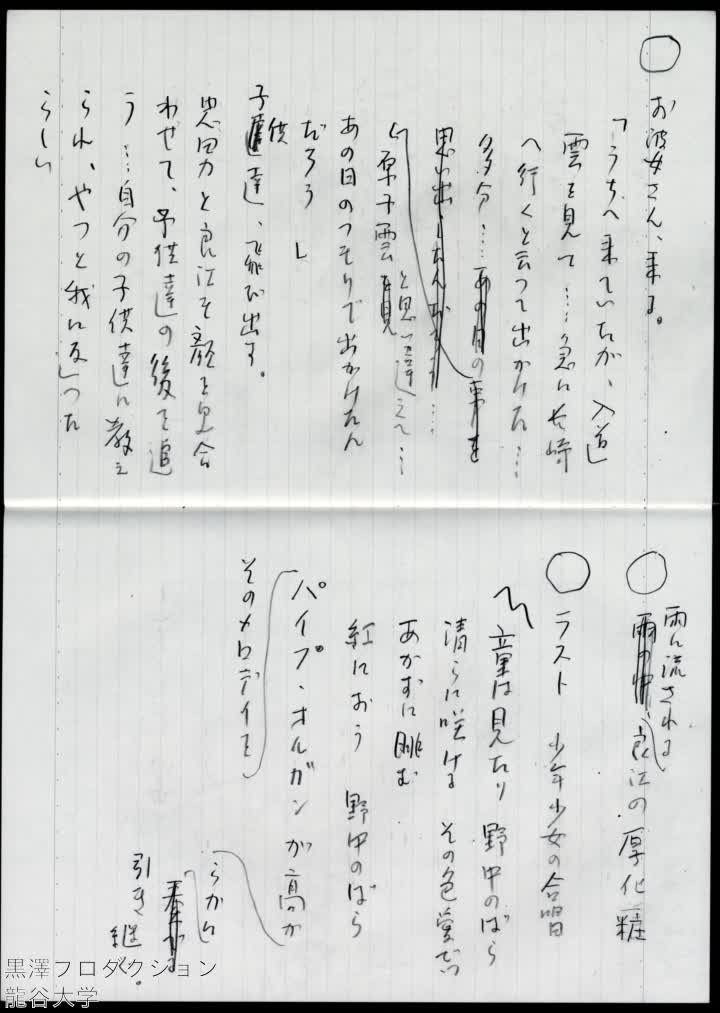 ○
お婆さん、来る。
「うちへ来ていたが、入道
雲を見て……急に長崎
へ行くと云つて出かけた……
多分……あの日の事を
思い出したんだろう……
「原子雲を見と思い違えて……
あの日のつもりで出かけたん
だろう」
子供達、飛び出す。
忠男と良江も顔を見合
わせて、子供達の後を追
う……自分の子供達に教え
られ、やつと我に返つた
らしい
○
雨に流される
雨の中、良江の厚化粧
○
ラスト 少年少女の合唱
童は見たり 野中のばら
清らに咲ける その色愛でつ
あかずに眺む
紅におう 野中のばら
そのメロデイを
パイプ・オルガンが高か
らかに
奏でる
引き継ぐ。
黒澤プロダクション
龍谷大学